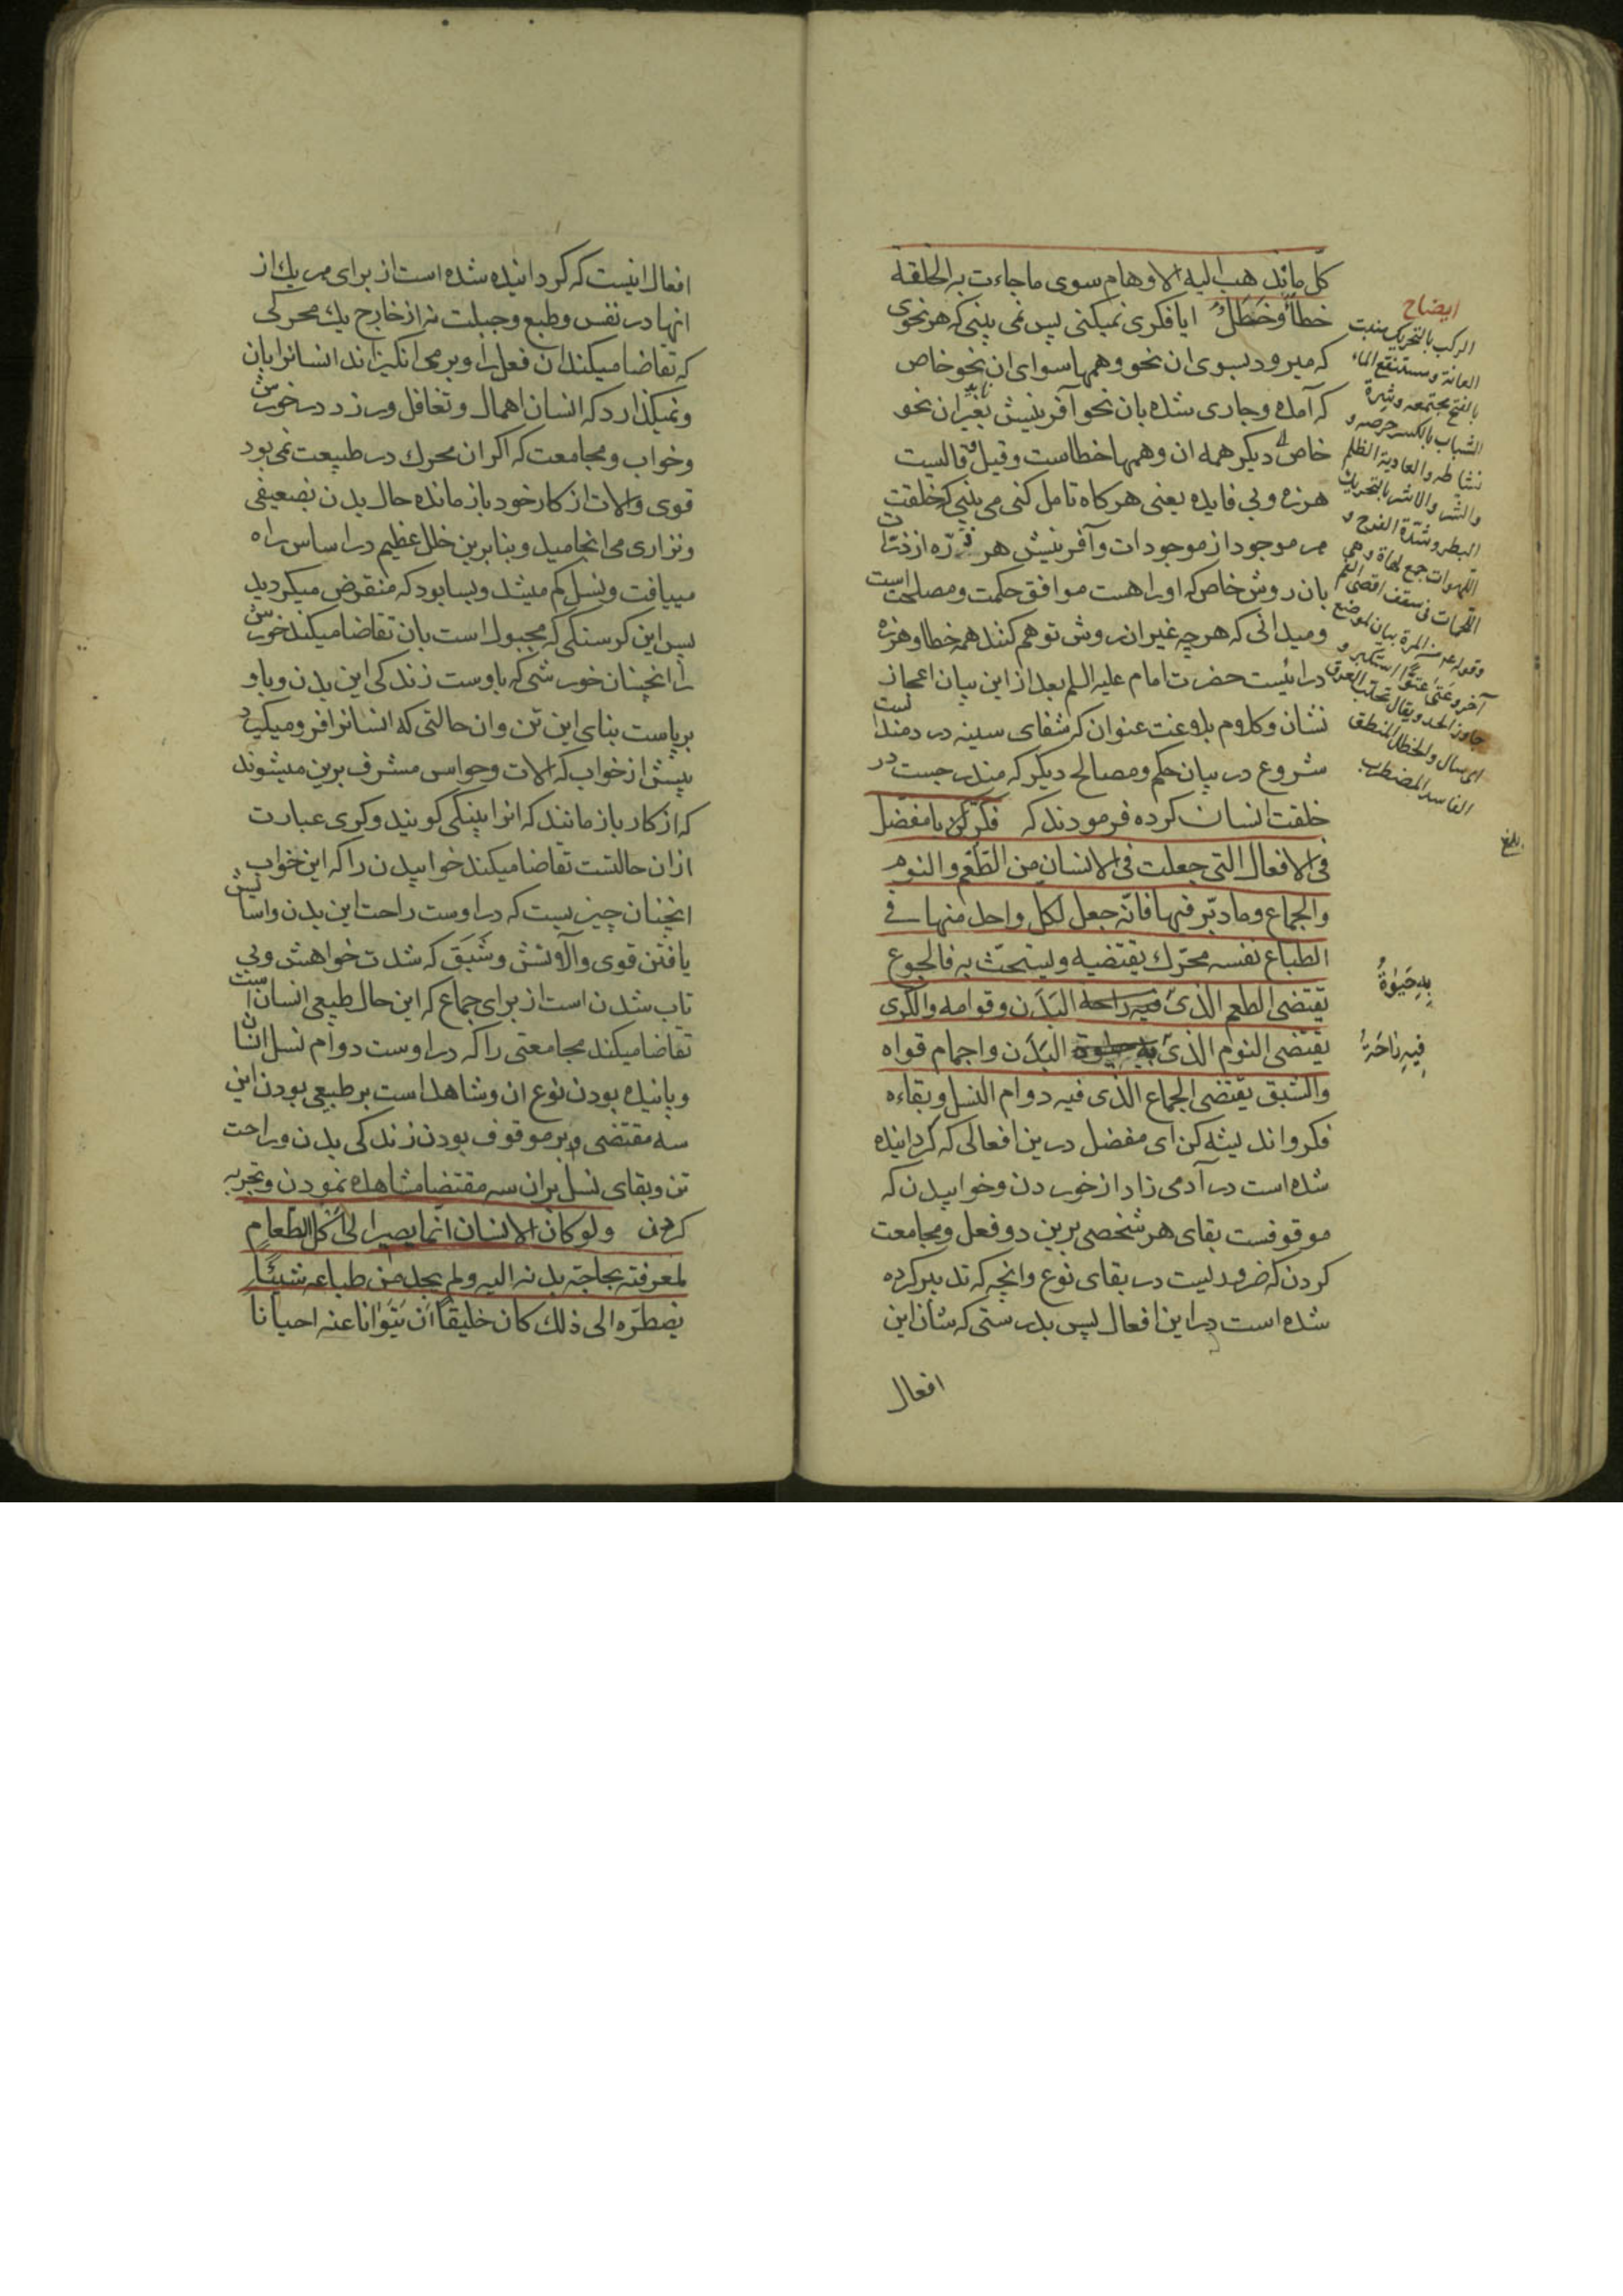 كلّ ما تذهب اليه الاوهام سوى ما جاءت به الخلقة
خطأٌ وخَطَلٌ ايا فكرى نميكنى پس نمى بينى كه هر نحوى
كه ميرود بسوى ان نحو وهمها سواى ان نحو خاص
كه آمده وجارى شده بان نحو آفرينش بغير ان نحو
خاص ديكر همه ان وهمها خطاست وقيل وقاليست
هرزه وبى فايده يعنى هركاه تامل كنى مى بينى كه خلقت
هر موجود از موجودات وآفرينش هر ذرّه از ذرّات
بان روش خاص كه اوراهست موافق حكمت ومصلحت است
وميدانى كه هرچه غير ان روش توهم كنند همه خطا وهرزه
درائيست حضرت امام عليه السلم بعد از اين بيان اعجاز
نشان وكلام بلاغت عنوان كه شفاى سينه دردمندانست
شروع در بيان حكم ومصالح ديكر كه مندرجست در
خلقت انسان كرده فرمودند كه فكّر يا مفضّل
فى الافعال التى جعلت فى الانسان من الطّعم والنوم
والجماع وما دبّر فيها فانّه جعل لكل واحد منها فى
الطباع نفسه محرّك يقتضيه ويستحثّ به فالجوع
يقتضى الطعم الذى فيه راحة البَدَن وقوامه والكرى
يقتضى النوم الذى به حيوة البَدَن واجمام قواه
والشبق يقتضى الجماع الذى فيه دوام النسل وبقاءه
فكر وانديشه كن اى مفضل درين افعالى كه كردانيده
شده است در آدمى زاد از خوردن وخوابيدن كه
موقوفست بقاى هر شخصى برين دو فعل ومجامعت
كردن كه ضروريست در بقاى نوع وانچه كه تدبير كرده
شده است در اين افعال پس بدرستى كه شان اين
افعال
ايضاح
الركب بالتحريك منبت
العانة ومستنقع الماء
بالفتح مجتمعه وشِرة
الشباب بالكسر حرصه و
نشاطه والعادية الظلم
والشر والاشر بالتحريك
البطر وشدة الفرح و
اللهوات جمع لهاة وهى
اللحمات فى سقف اقصى الفم
جاوز الحد ويقال تحلّب العرق
اى سال والخطل المنطق
الفاسد المضطرب
بلغ
بِهِ حَيٰوةُ
فِيهِ رٰاحَةُ
افعال اينست كه كردانيده شده است از براى هر يك از
انها در نفس وطبع وجبلت نه از خارج يك محركى
كه تقاضا ميكند ان فعل را وبرمى انكيزاند انسانرا بان
ونميكذارد كه انسان اهمال وتغافل ورزد در خورش
وخواب ومجامعت كه اكر ان محرك در طبيعت نمى بود
قوى والات از كار خود باز مانده حال بدن بضعيفى
ونزارى مى انجاميد وبنابرين خلل عظيم در اساس راه
مييافت ونسل كم ميشد وبسا بود كه منقرض ميكرديد
پس اين كرسنكى كه مجبول است بان تقاضا ميكند خورش
را انچنان خورشى كه باوست زندكى اين بدن وباو
برپاست بناى اين تن وان حالتى كه انسانرا فرو ميكيرد
پيش از خواب كه الات وحواس مشرف برين ميشوند
كه از كار باز مانند كه انرا پينكى كويند وكرى عبارت
ازان حالتست تقاضا ميكند خوابيدن را كه اين خواب
انچنان چيزيست كه در اوست راحت اين بدن واسايش
يافتن قوى والاتش وشَبَق كه شدت خواهش وبى
تاب شدن است از براى جماع كه اين حال طبيعى انسان است
تقاضا ميكند مجامعتى را كه در اوست دوام نسل انسان
وپاينده بودن نوع ان وشاهد است بر طبيعى بودن اين
سه مقتضى وبر موقوف بودن زندكى بدن وراحت
تن وبقاى نسل بران سه مقتضا مشاهده نمودن وتجربه
كردن ولو كان الانسان انّما يصير الى اكل الطّعام
لمعرفته بحاجة بدنه اليه ولم يجد من طباعه شيئًا
يضطرّه الى ذلك كان خليقًا ان يتوانا عنه احيانا